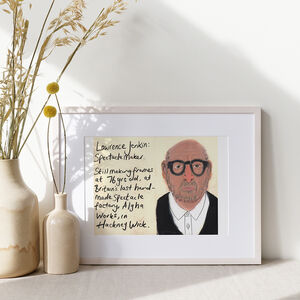 Lawrence Jenkin:
Spectacle Maker.
Still making frames
at 76 yrs old, at
Britain's last hand-
made Spectacle
factory, Algha
Works, in
Hackney Wick.